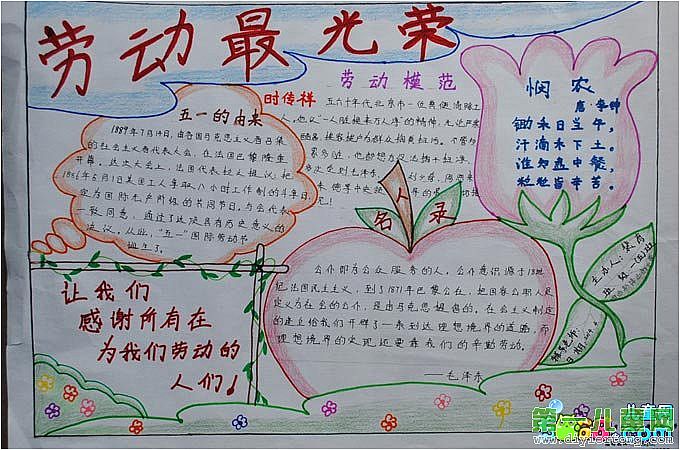 劳动最光荣
五一的由来
1889年7月14日,由各国马克思主义者召集
的社会主义者代表大会,在法国巴黎隆重
开幕。这次大会上,法国代表拉人提议:把
1886年5月1日美国工人争取八小时工作制的斗争日,
定为国际无产阶级的共同节日。与会代表
一致同意,通过了这项具有历史意义的
决议。从此,“五一”国际劳动节
诞生了。
劳动模范
时传祥
五六十年代北京市一位负
悯农
唐·李绅
锄禾日当午,
汗滴禾下土。
谁知盘中餐,
粒粒皆辛苦。
名人录
公仆即为公众服务的人,公仆意识源于18世
纪法国民主主义,到了1871年巴黎公社,把国家公职人员
定义为社会的公仆,是由马克思提出的,在社会主义制定
的建立给我们开辟了一条到达理想境界的道路,而
理想境界的实现还要靠我们的辛勤劳动。
——毛泽东
让我们
感谢所有在
为我们劳动的
人们!
主办人:
班级:
指导老师:
日期:
第一儿童网
www.diyiertong.com